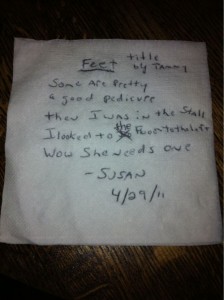 Feet title
by Tammy
Some Are Pretty
a good pedicure
then I was in the Stall
I looked to the Floor to the left
Wow She needs one
- SUSAN
4/29/11